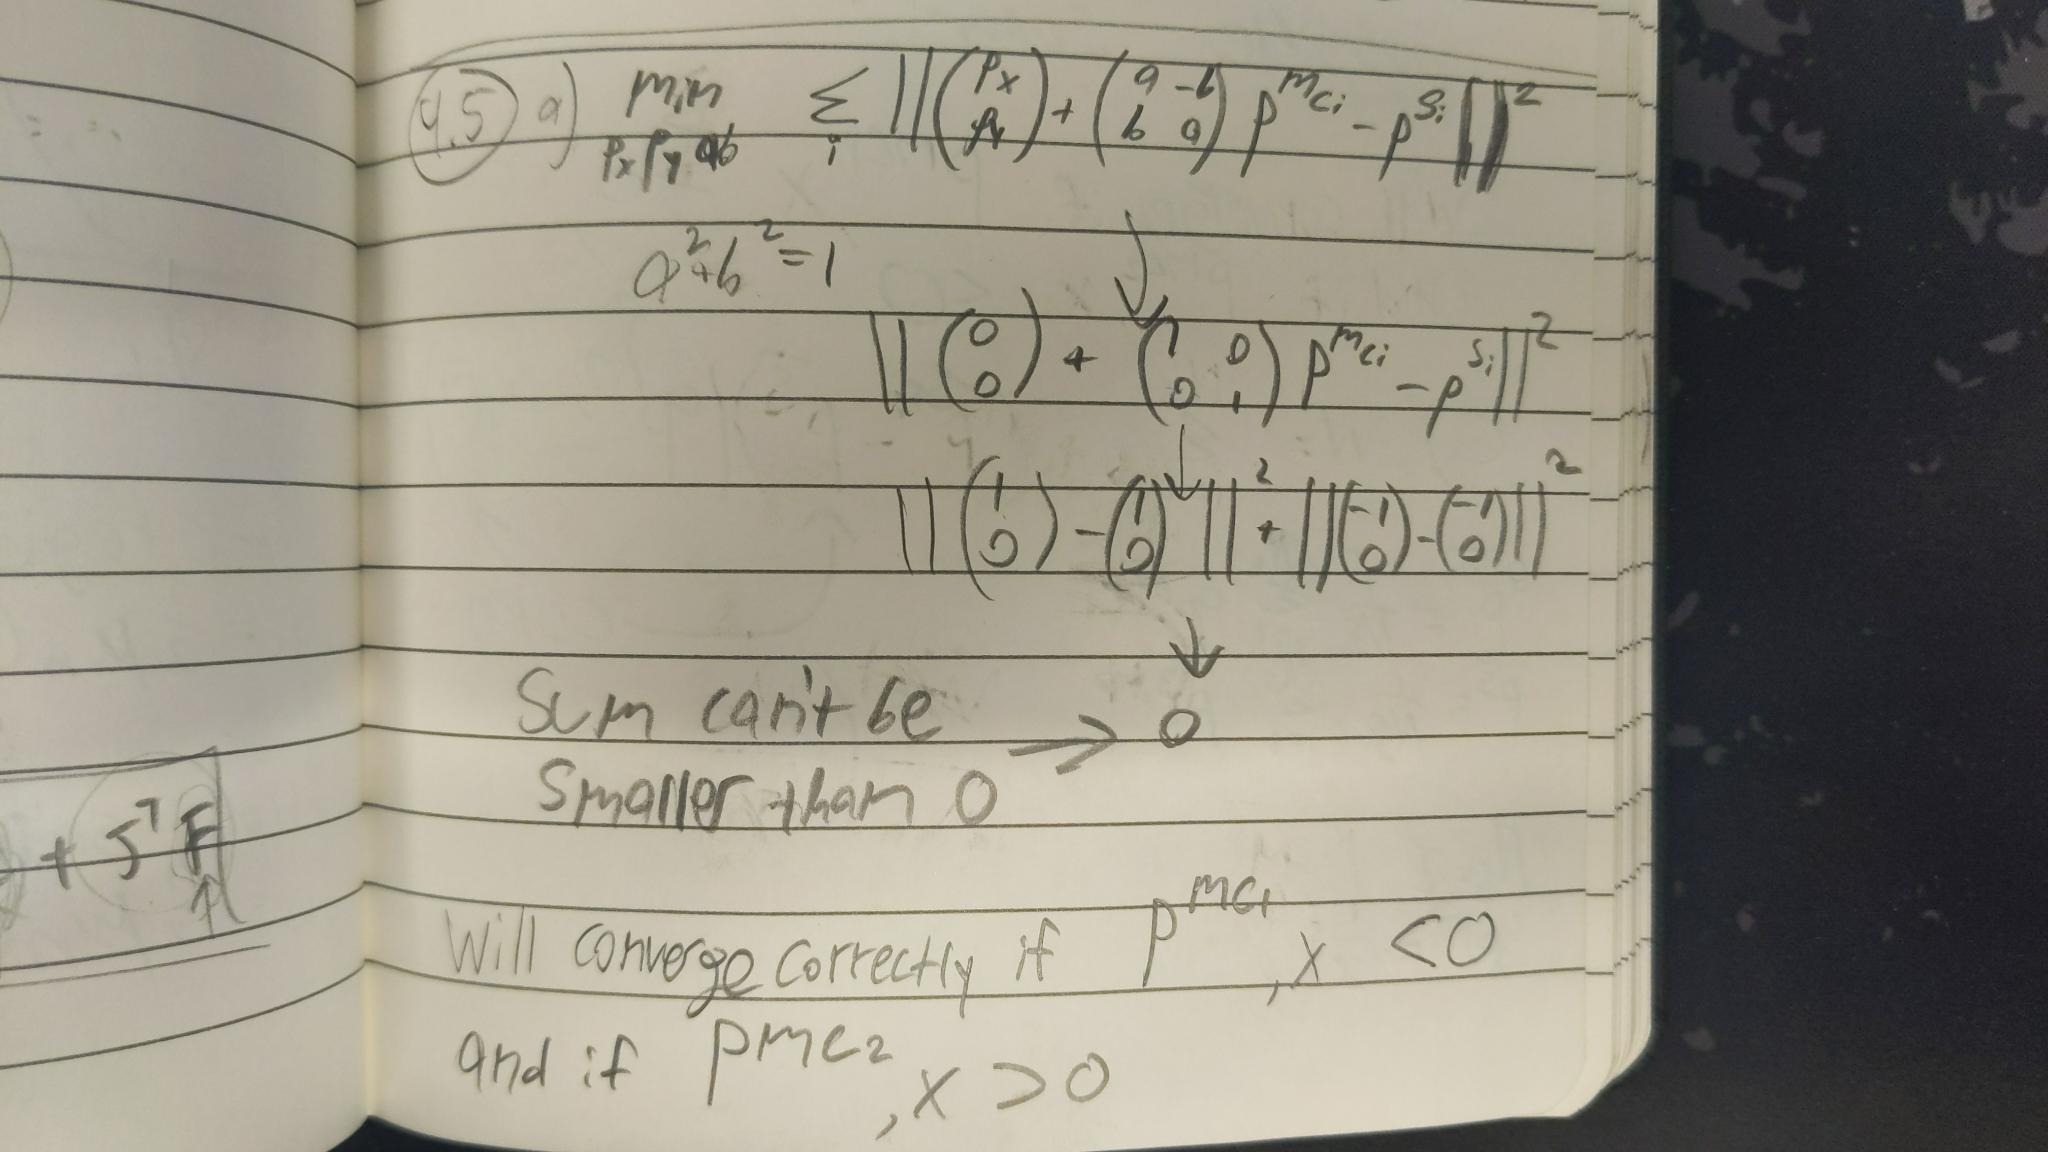 + J^T F
4.5 a) min Σ ||(Px Py) + (a -b b a) p^mci - p^si||^2
Px Py ab i
a^2+b^2=1
||(0 0) + (1 0 0 1) p^mci - p^si||^2
||(1 0) - (1 0)||^2 + ||(-1 0) - (-1 0)||^2
Sum can't be
→ 0
Smaller than 0
Will converge correctly if p^mc1,x <0
and if p^mc2,x >0